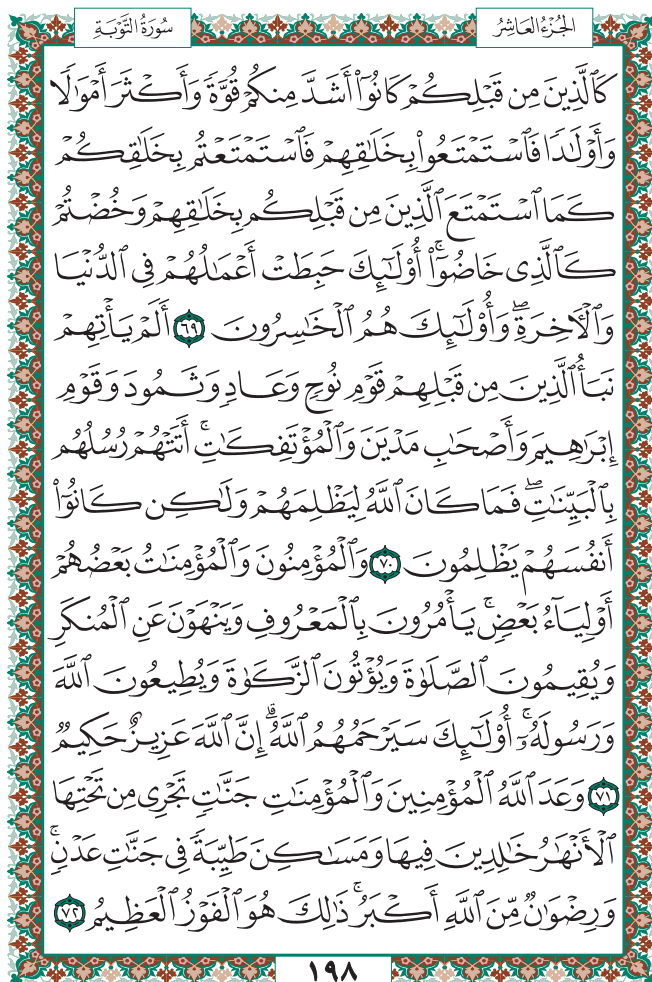 سُورَةُ التَّوۡبَةِ
الجُزۡءُ العَاشِرُ
كَٱلَّذِينَ مِن قَبۡلِكُمۡ كَانُوٓاْ أَشَدَّ مِنكُمۡ قُوَّةٗ وَأَكۡثَرَ أَمۡوَٰلٗا
وَأَوۡلَٰدٗا فَٱسۡتَمۡتَعُواْ بِخَلَٰقِهِمۡ فَٱسۡتَمۡتَعۡتُم بِخَلَٰقِكُمۡ
كَمَا ٱسۡتَمۡتَعَ ٱلَّذِينَ مِن قَبۡلِكُم بِخَلَٰقِهِمۡ وَخُضۡتُمۡ
كَٱلَّذِي خَاضُوٓاْۚ أُوْلَٰٓئِكَ حَبِطَتۡ أَعۡمَٰلُهُمۡ فِي ٱلدُّنۡيَا
وَٱلۡأٓخِرَةِۖ وَأُوْلَٰٓئِكَ هُمُ ٱلۡخَٰسِرُونَ ٦٩ أَلَمۡ يَأۡتِهِمۡ
نَبَأُ ٱلَّذِينَ مِن قَبۡلِهِمۡ قَوۡمِ نُوحٖ وَعَادٖ وَثَمُودَ وَقَوۡمِ
إِبۡرَٰهِيمَ وَأَصۡحَٰبِ مَدۡيَنَ وَٱلۡمُؤۡتَفِكَٰتِۚ أَتَتۡهُمۡ رُسُلُهُم
بِٱلۡبَيِّنَٰتِۖ فَمَا كَانَ ٱللَّهُ لِيَظۡلِمَهُمۡ وَلَٰكِن كَانُوٓاْ
أَنفُسَهُمۡ يَظۡلِمُونَ ٧٠ وَٱلۡمُؤۡمِنُونَ وَٱلۡمُؤۡمِنَٰتُ بَعۡضُهُمۡ
أَوۡلِيَآءُ بَعۡضٖۚ يَأۡمُرُونَ بِٱلۡمَعۡرُوفِ وَيَنۡهَوۡنَ عَنِ ٱلۡمُنكَرِ
وَيُقِيمُونَ ٱلصَّلَوٰةَ وَيُؤۡتُونَ ٱلزَّكَوٰةَ وَيُطِيعُونَ ٱللَّهَ
وَرَسُولَهُۥٓۚ أُوْلَٰٓئِكَ سَيَرۡحَمُهُمُ ٱللَّهُۗ إِنَّ ٱللَّهَ عَزِيزٌ حَكِيمٞ
٧١ وَعَدَ ٱللَّهُ ٱلۡمُؤۡمِنِينَ وَٱلۡمُؤۡمِنَٰتِ جَنَّٰتٖ تَجۡرِي مِن تَحۡتِهَا
ٱلۡأَنۡهَٰرُ خَٰلِدِينَ فِيهَا وَمَسَٰكِنَ طَيِّبَةٗ فِي جَنَّٰتِ عَدۡنٖۚ
وَرِضۡوَٰنٞ مِّنَ ٱللَّهِ أَكۡبَرُۚ ذَٰلِكَ هُوَ ٱلۡفَوۡزُ ٱلۡعَظِيمُ ٧٢
١٩٨